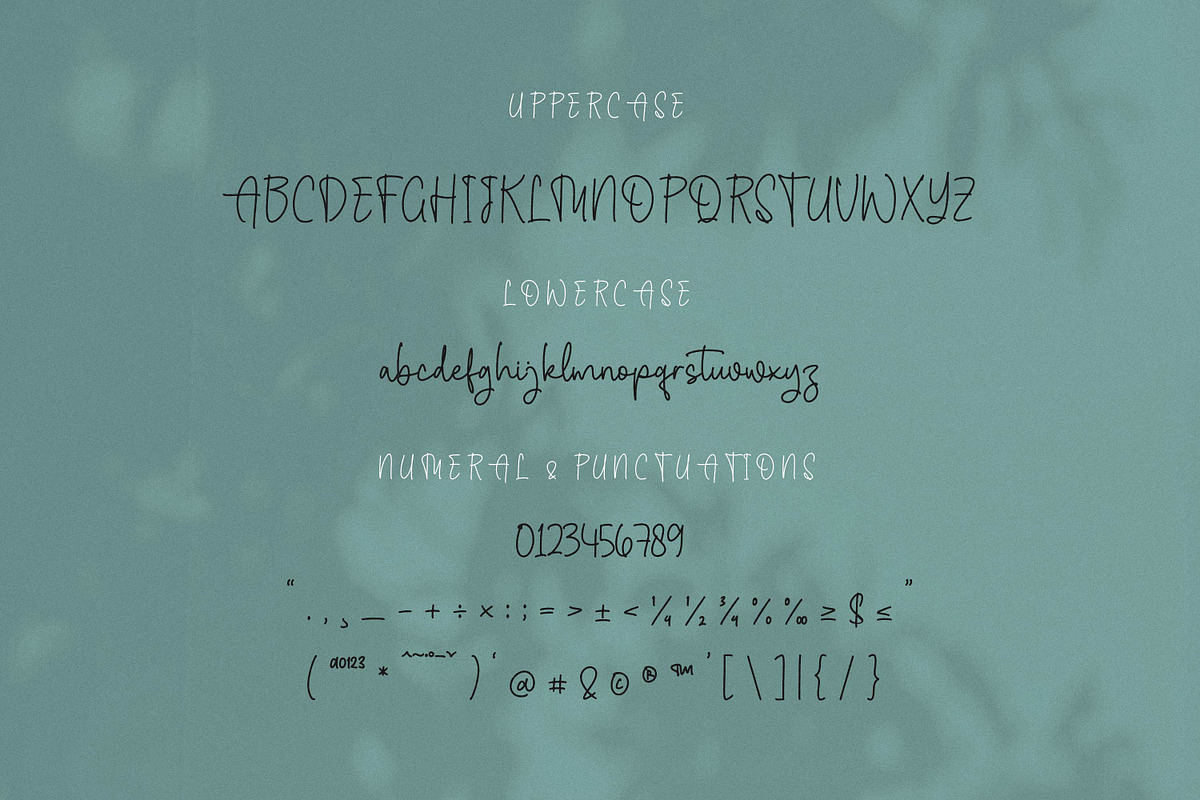 UPPERCASE
ABCDEFGHIJKLMNOPQRSTUVWXYZ
LOWERCASE
abcdefghijklmnopqrstuvwxyz
NUMERAL & PUNCTUATIONS
0123456789
“ . , ¸ _ - + ÷ × : ; = > ± < ¼ ½ ¾ % ‰ ≥ $ ≤ ”
( ªº¹²³ * ^~¨°¯ˇ ) ‘ @ # & © ® ™ ’ [ \ ] | { / }